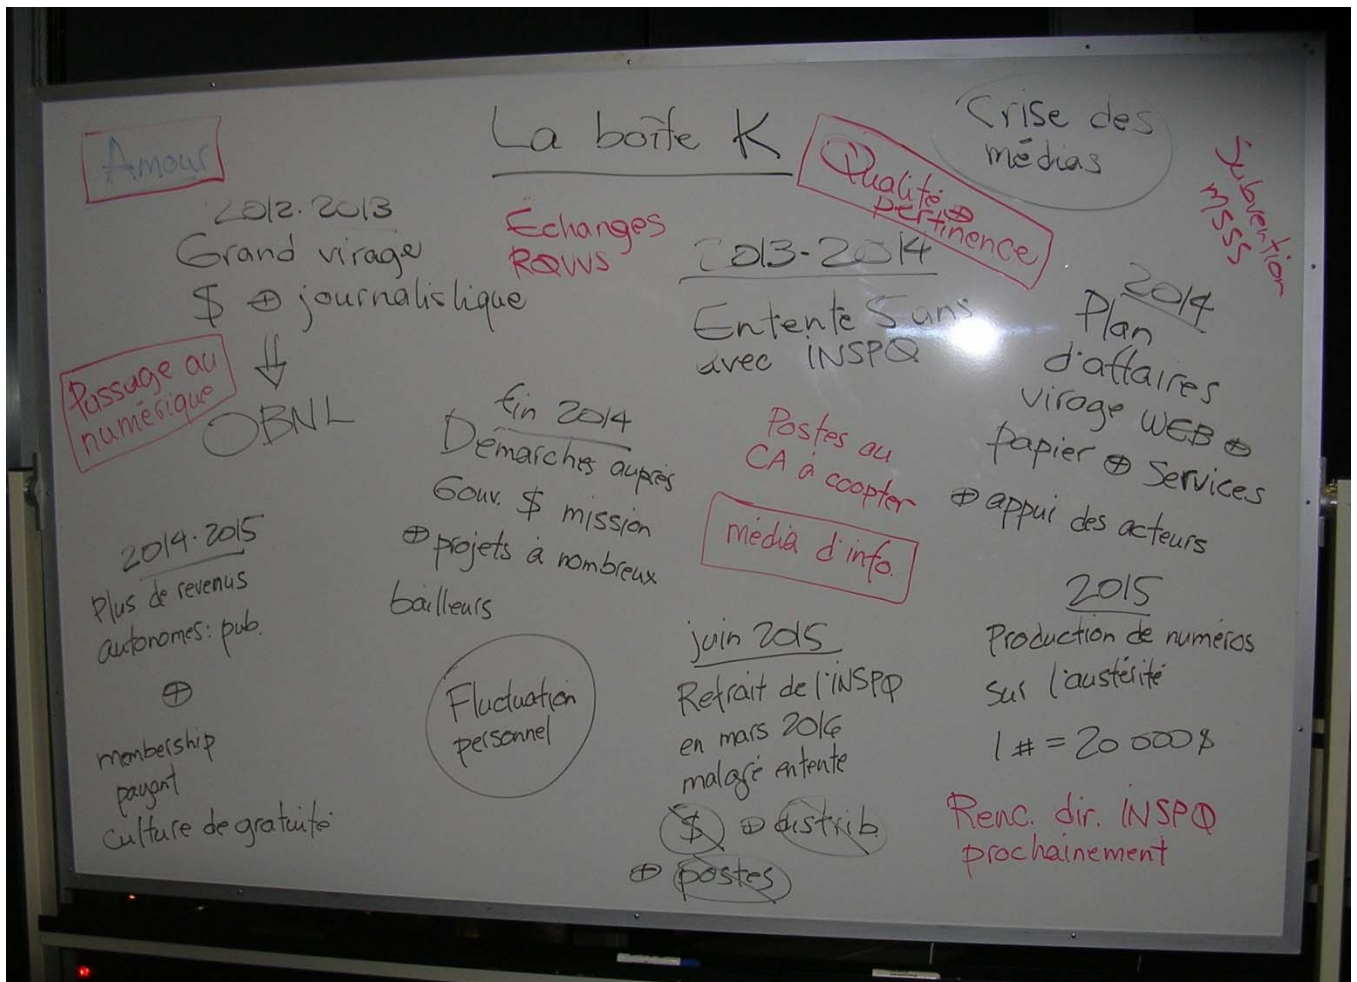 La boîte K
Amour
2012-2013
Grand virage
$ ⊕ journalistique
⇓
OBNL
Échanges
RQVVS
Qualité ⊕
pertinence
Crise des
médias
Subvention
MSSS
2013-2014
Entente 5 ans
avec INSPQ
2014
Plan
d'affaires
virage WEB ⊕
papier ⊕ Services
⊕ appui des acteurs
Passage au
numérique
fin 2014
Démarches auprès
Gouv. $ mission
⊕ projets à nombreux
bailleurs
Postes au
CA à coopter
média d'info.
2014-2015
Plus de revenus
autonomes: pub.
⊕
membership
payant
culture de gratuité
Fluctuation
personnel
juin 2015
Retrait de l'INSPQ
en mars 2016
malgré entente
$ ⊕ distrib
⊕ postes
2015
Production de numéros
sur l'austérité
1 # = 20 000 $
Renc. dir. INSPQ
prochainement